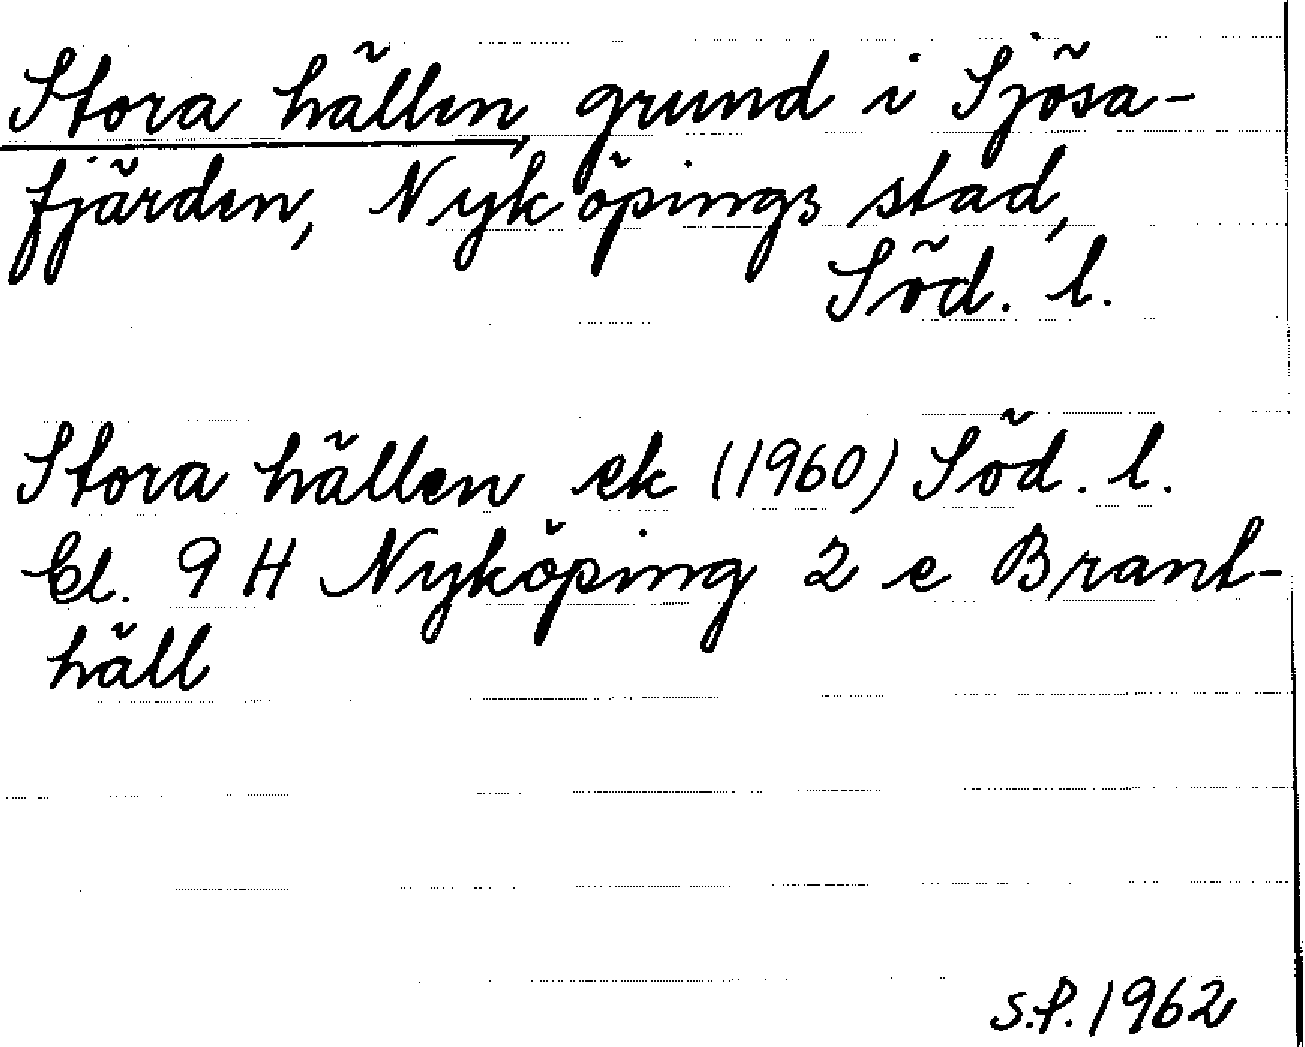 Stora hällen, grund i Sjösa-
fjärden, Nyköpings stad,
Söd. l.
Stora hällen ek (1960) Söd. l.
Bl. 9 H Nyköping 2 e Brant-
häll
S.P. 1962